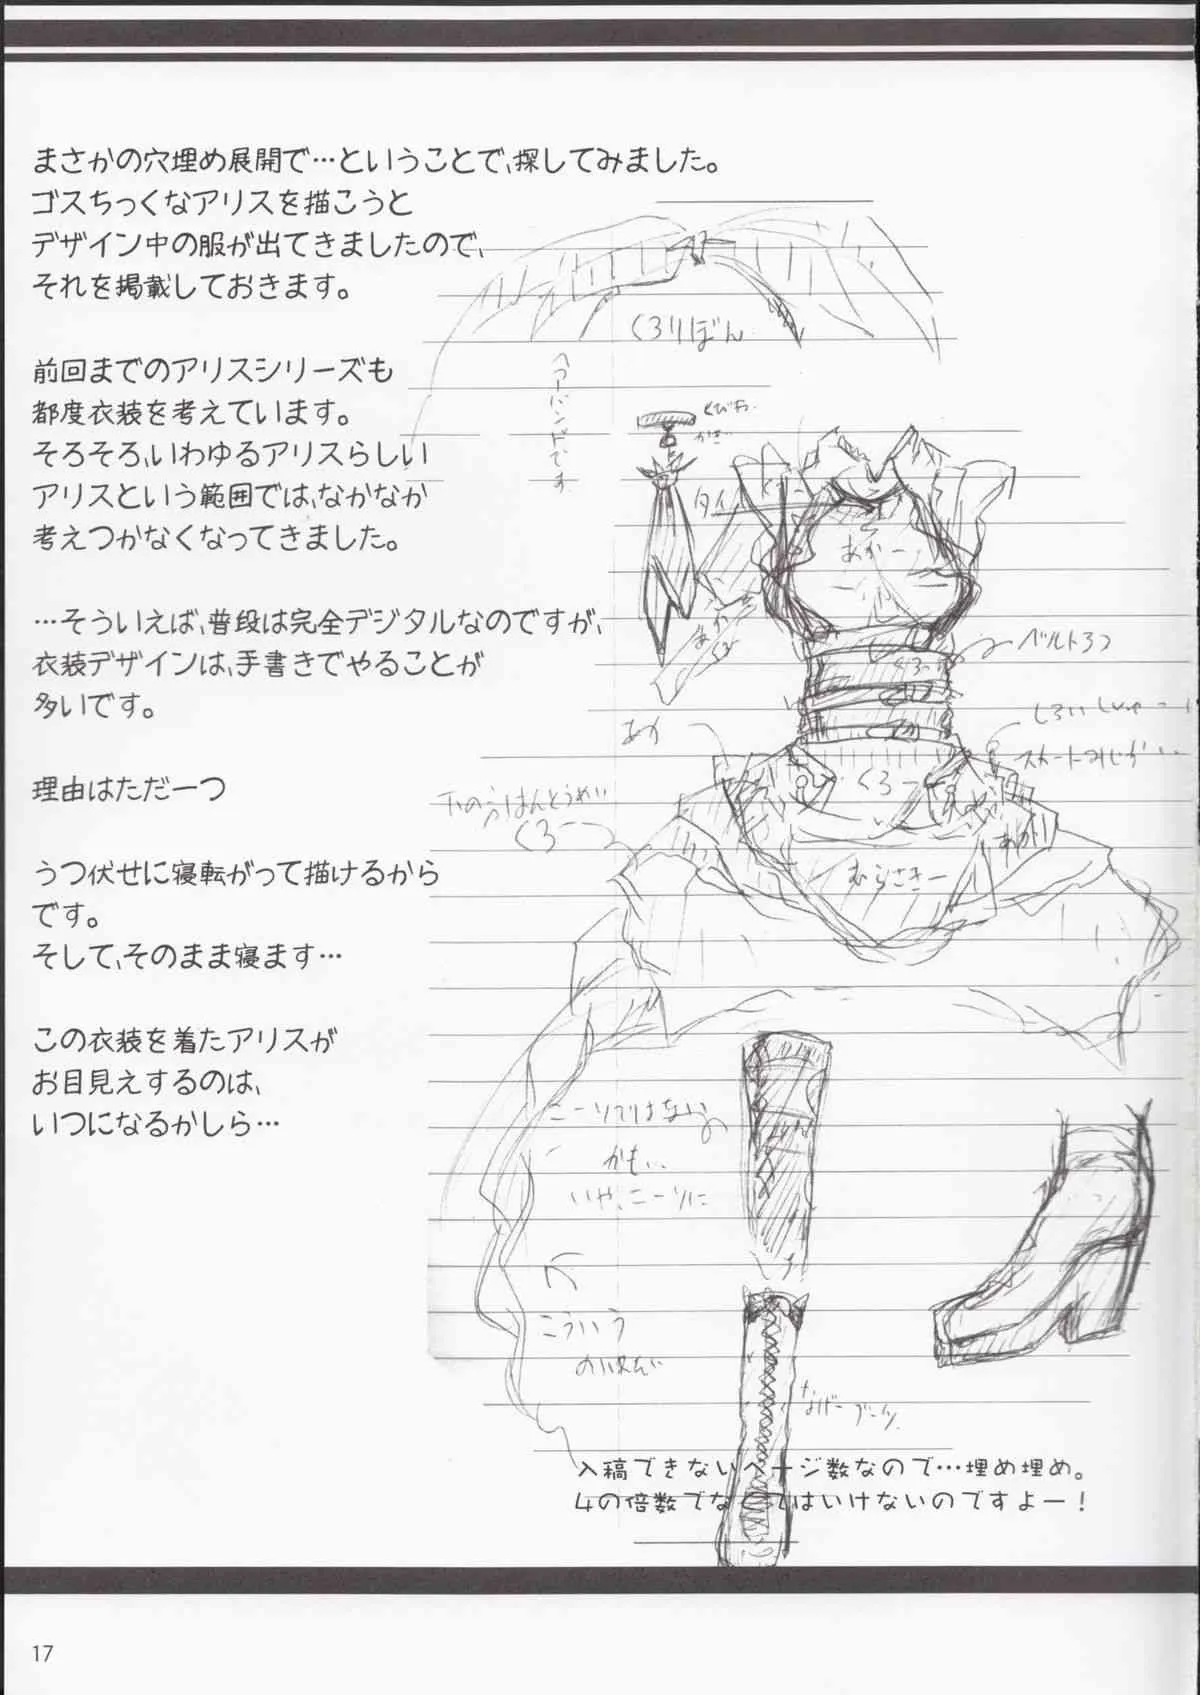 まさかの穴埋め展開で…ということで、探してみました。
ゴスちっくなアリスを描こうと
デザイン中の服が出てきましたので、
それを掲載しておきます。
前回までのアリスシリーズも
都度衣装を考えています。
そろそろ、いわゆるアリスらしい
アリスという範囲では、なかなか
考えつかなくなってきました。
…そういえば、普段は完全デジタルなのですが、
衣装デザインは、手書きでやることが
多いです。
理由はただ一つ
うつ伏せに寝転がって描けるから
です。
そして、そのまま寝ます…
この衣装を着たアリスが
お目見えするのは、
いつになるかしら…
くろりぼん
へあーバンドです
くびわ
タイ
あかー
ベルト3つ
くろー
あか
スカートみじかい
くろー
下のうはんとうめい
くろーー
むらさきー
ニーソではないの
かも…
いや、ニーソに
こういう
ながーブーツ
入稿できないページ数なので…埋め埋め。
4の倍数でなくてはいけないのですよー!
17